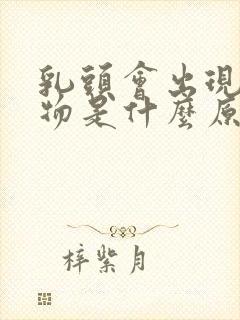 乳頭會出現
物是什麼原
梓紫月